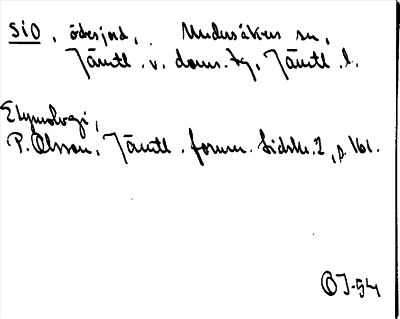 Sio, ödesjord, Undersåkers sn,
Jämtl. v. doms. tg, Jämtl. l.
Etymologi,
P. Olsson, Jämtl. fornm. tidskr. 2, s. 161.
OJ-54